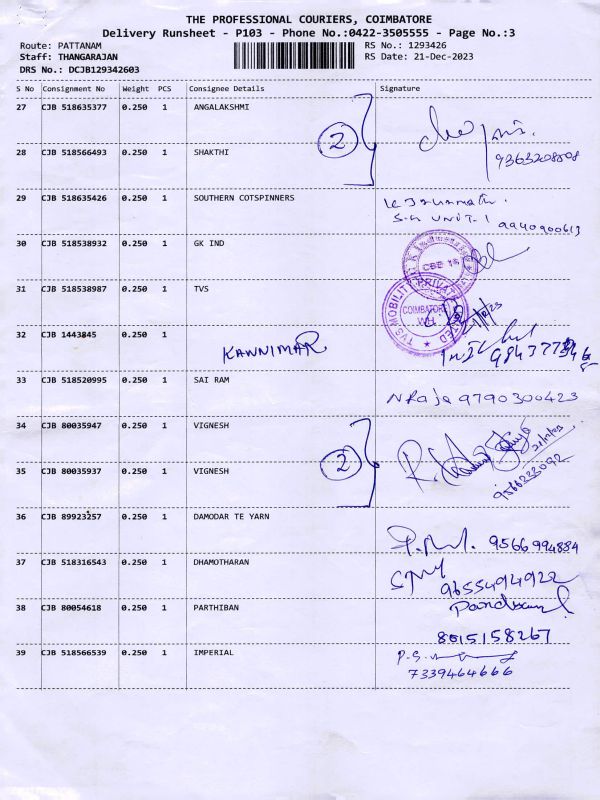 THE PROFESSIONAL COURIERS, COIMBATORE
Delivery Runsheet - P103 - Phone No.:0422-3505555 - Page No.:3
Route: PATTANAM RS No.: 1293426
Staff: THANGARAJAN RS Date: 21-Dec-2023
DRS No.: DCJB129342603
S No Consignment No Weight PCS Consignee Details Signature
27 CJB 518635377 0.250 1 ANGALAKSHMI
2
28 CJB 518566493 0.250 1 SHAKTHI
29 CJB 518635426 0.250 1 SOUTHERN COTSPINNERS
UNIT-1 9940900613
30 CJB 518538932 0.250 1 GK IND
31 CJB 518538987 0.250 1 TVS
TVS MOBILITY PRIVATE LIMITED
COIMBATORE
WH
32 CJB 1443845 0.250 1
KANNIMAR
33 CJB 518520995 0.250 1 SAI RAM
N Raja 9790300423
34 CJB 80035947 0.250 1 VIGNESH
2
35 CJB 80035937 0.250 1 VIGNESH
9566233092
36 CJB 89923257 0.250 1 DAMODAR TE YARN
9566994884
37 CJB 518316543 0.250 1 DHAMOTHARAN
9655494922
38 CJB 80054618 0.250 1 PARTHIBAN
8015158267
39 CJB 518566539 0.250 1 IMPERIAL
P.S.
7339464666